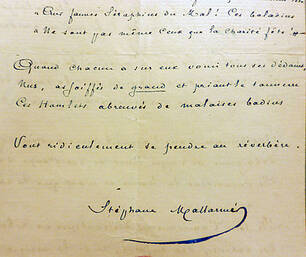 « Aux fauves Séraphins du Mal ! Ces baladins
« Ne sont pas même ceux que la charité fête
Quand chacun a sur eux vomi tous ses dédains,
Nus, assoiffés de grand et priant le tonnerre
Ces Hamlets abreuvés de malaises badins
Vont ridiculement se pendre au réverbère.
Stéphane Mallarmé